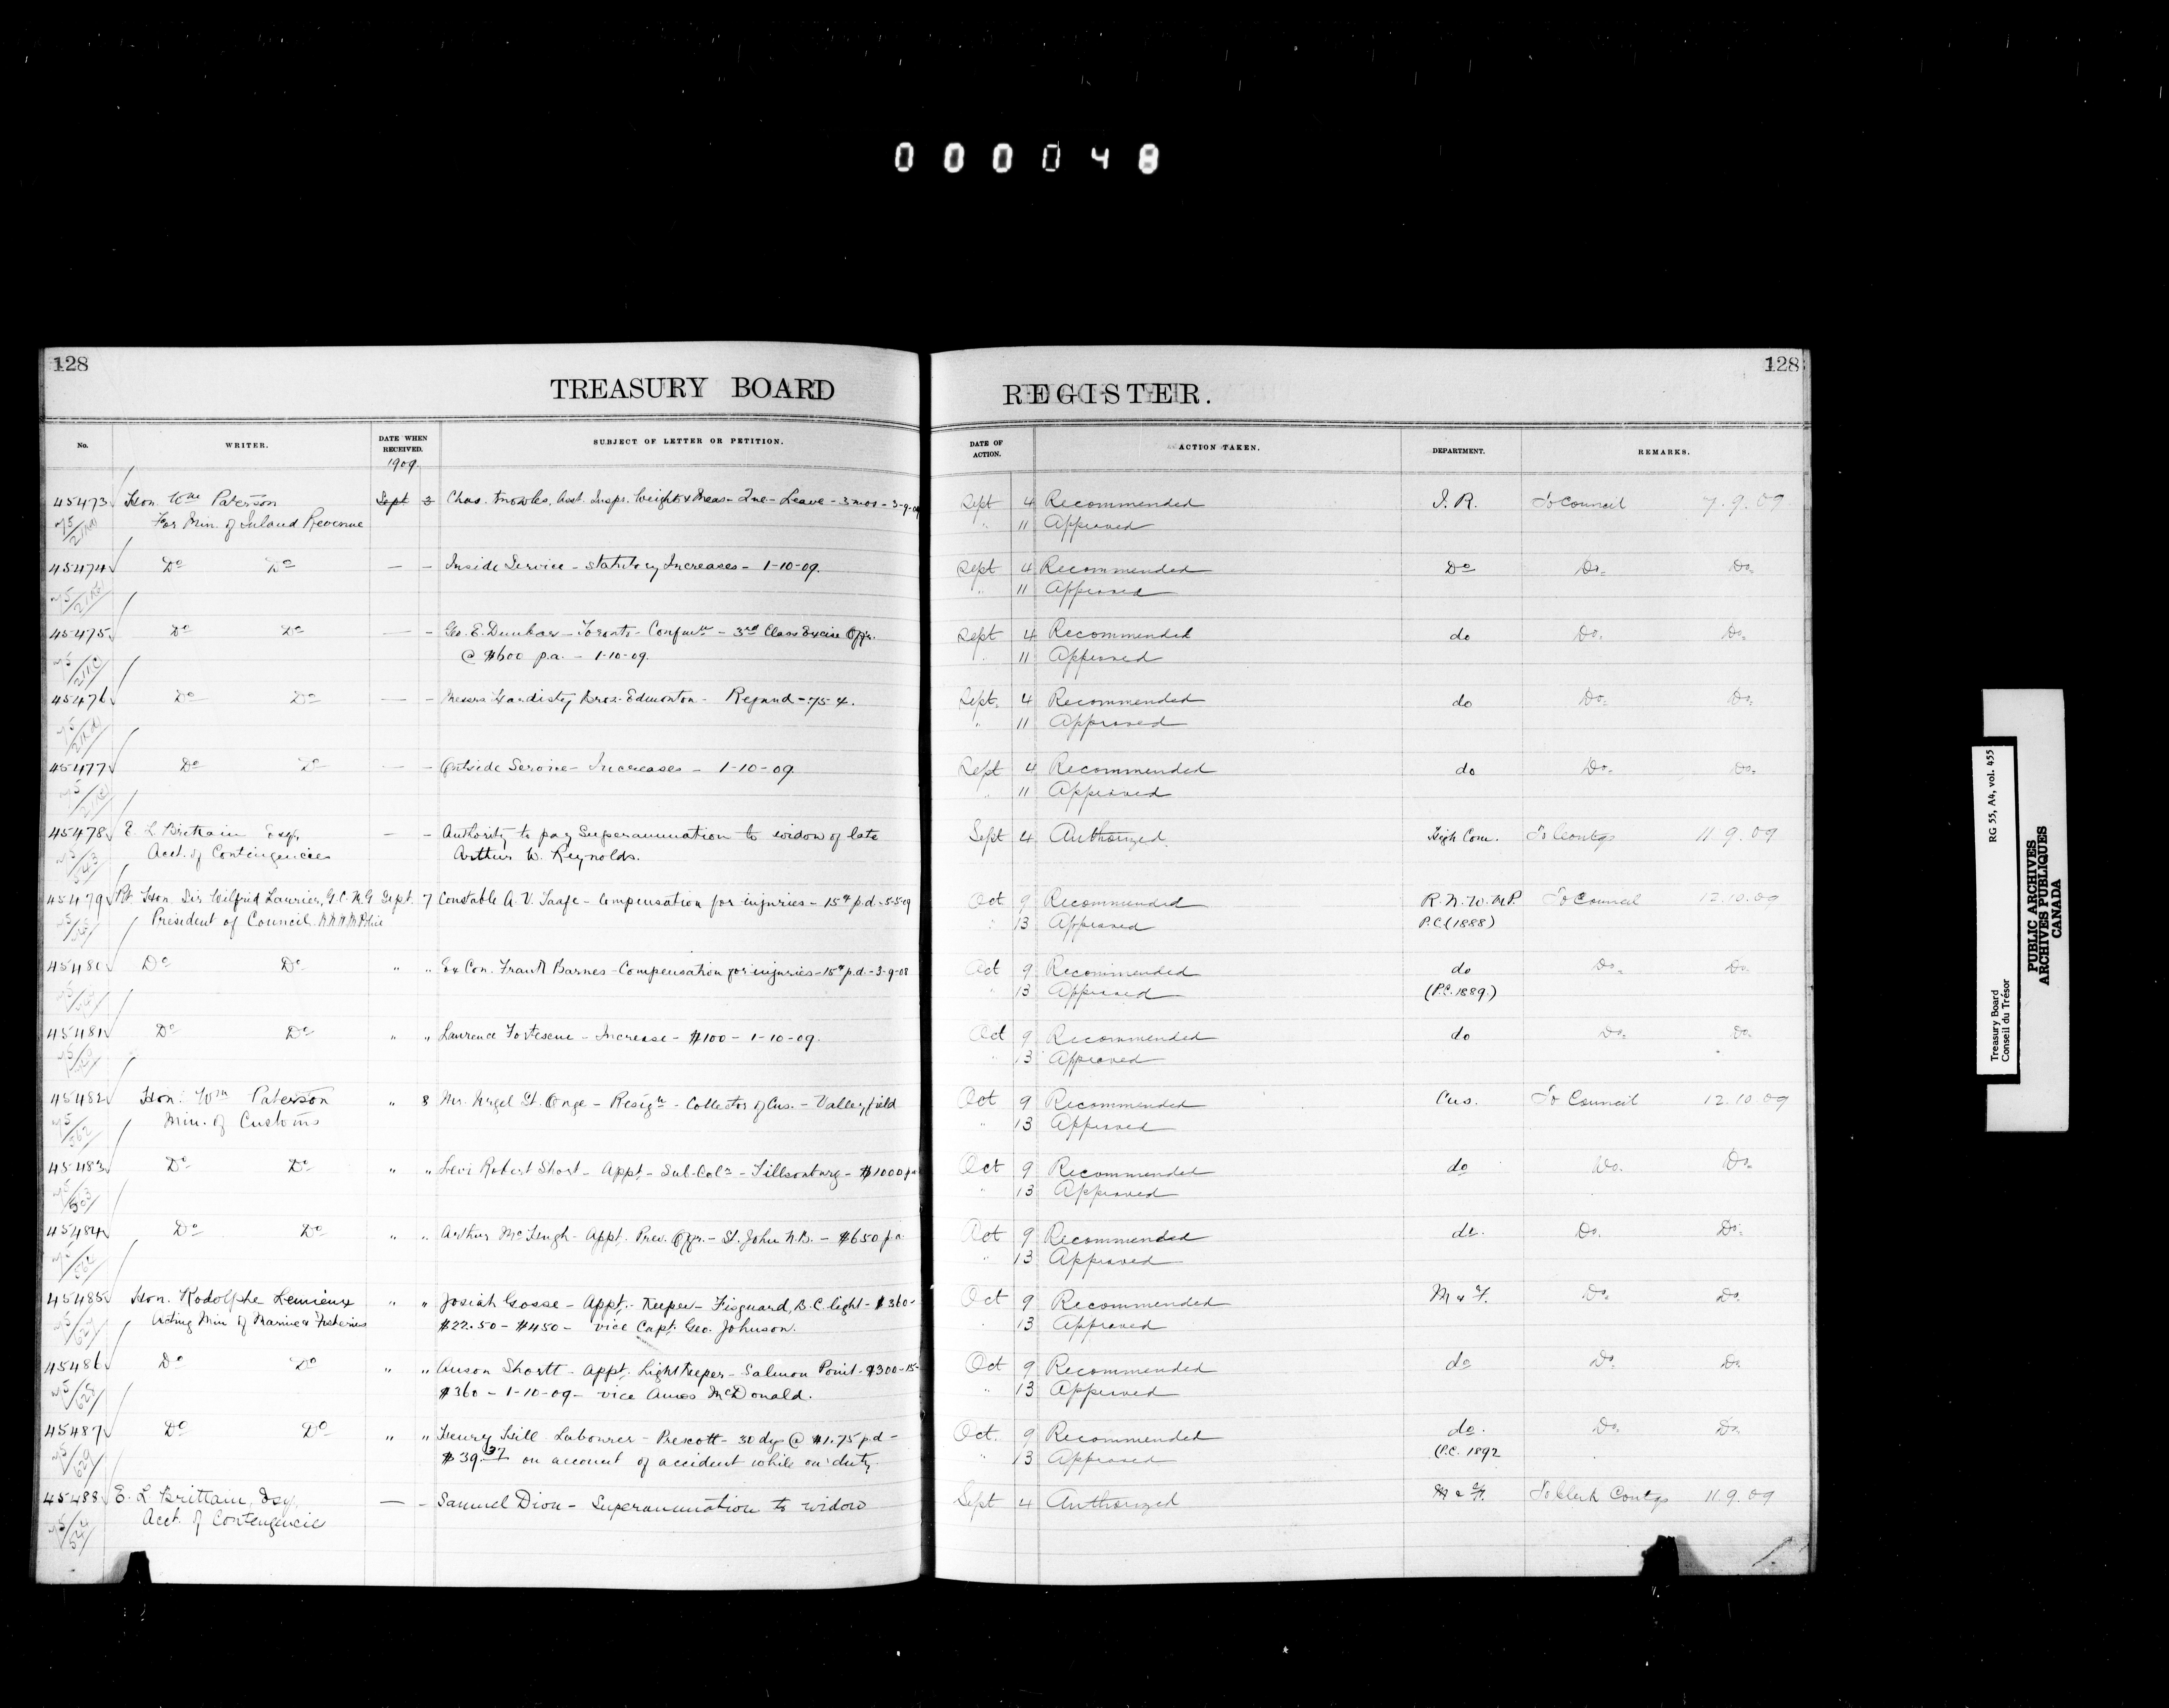 000048
128
128
TREASURY BOARD REGISTER.
No. WRITER. DATE WHEN RECEIVED. SUBJECT OF LETTER OR PETITION. DATE OF ACTION. ACTION TAKEN. DEPARTMENT. REMARKS.
1909.
45473 Hon. Wm Paterson Sept 3 Chas. Knowles, Asst. Inspr. Weights & Meas - Que - Leave - 3 mos - 3-9-09 Sept 4 Recommended I.R. To Council 7.9.09
For Min. of Inland Revenue " 11 Approved
45474 Do Do — - Inside Service - Statutory Increases - 1-10-09. Sept 4 Recommended Do Do. Do.
" 11 Approved
45475 Do Do — - Geo. E. Dunbar - Toronto - Confirmn - 3rd Class Excise Offr. Sept 4 Recommended do Do. Do.
@ $600 p.a. - 1-10-09. " 11 Approved
45476 Do Do — - Messrs Hardisty Bros. Edmonton - Refund - Sept. 4 Recommended do Do. Do.
" 11 Approved
45477 Do Do — - Outside Service - Increases - 1-10-09 Sept 4 Recommended do Do. Do.
" 11 Approved
45478 E. L. Brittain Esq. — - Authority to pay Superannuation to widow of late Sept 4 Authorized. High Com. To Contgs 11.9.09
Acct. of Contingencies Arthur W. Reynolds.
45479 Rt. Hon. Sir Wilfrid Laurier, G.C.M.G. Sept. 7 Constable A. V. - Compensation for injuries - 15 p.d. - 5-5-09 Oct 9 Recommended R.N.W.M.P. To Council 12.10.09
President of Council " 13 Approved P.C. (1888)
45480 Do Do " " Ex Con. Frank Barnes - Compensation for injuries - 15 p.d. - 3-9-08 Oct 9 Recommended do Do. Do.
" 13 Approved (P.C. 1889.)
45481 Do Do " " Laurence Fortescue - Increase - $100 - 1-10-09. Oct 9 Recommended do Do. Do.
" 13 Approved
45482 Hon. Wm Paterson " 8 Mr. Urgel St. Onge - Resign - Collector of Cus. - Valleyfield Oct 9 Recommended Cus. To Council 12.10.09
Min. of Customs " 13 Approved
45483 Do Do " " Levi Robert Short - Appt. - Sub-Colr - Tillsonburg - $1000 pa Oct 9 Recommended do Do. Do.
" 13 Approved
45484 Do Do " " Arthur McHugh - Appt. Prev. Offr. - St. John N.B. - $650 pa Oct 9 Recommended do. Do. Do.
" 13 Approved
45485 Hon. Rodolphe Lemieux " " Josiah Gosse - Appt. Keeper - Fisguard, B.C. light - $360- Oct 9 Recommended M & F. Do. Do.
Acting Min of Marine & Fisheries $22.50 - $450 - vice Capt. Geo. Johnson. " 13 Approved
45486 Do Do " " Anson Shortt - Appt. Lightkeeper - Salmon Point - $300-15- Oct 9 Recommended do Do. Do.
$360 - 1-10-09 - vice Amos McDonald. " 13 Approved
45487 Do Do " " Henry Hill Labourer - Prescott - 30 dys @ $1.75 p.d - Oct. 9 Recommended do. Do. Do.
$39.37 on account of accident while on duty " 13 Approved (P.C. 1892
45488 E. L. Brittain, Esq. — - Samuel Dion - Superannuation to widow Sept 4 Authorized M & F. To Clerk Contgs 11.9.09
Acct. of Contingencies
Treasury Board RG 55, A4, vol. 455
Conseil du Trésor
PUBLIC ARCHIVES
ARCHIVES PUBLIQUES
CANADA